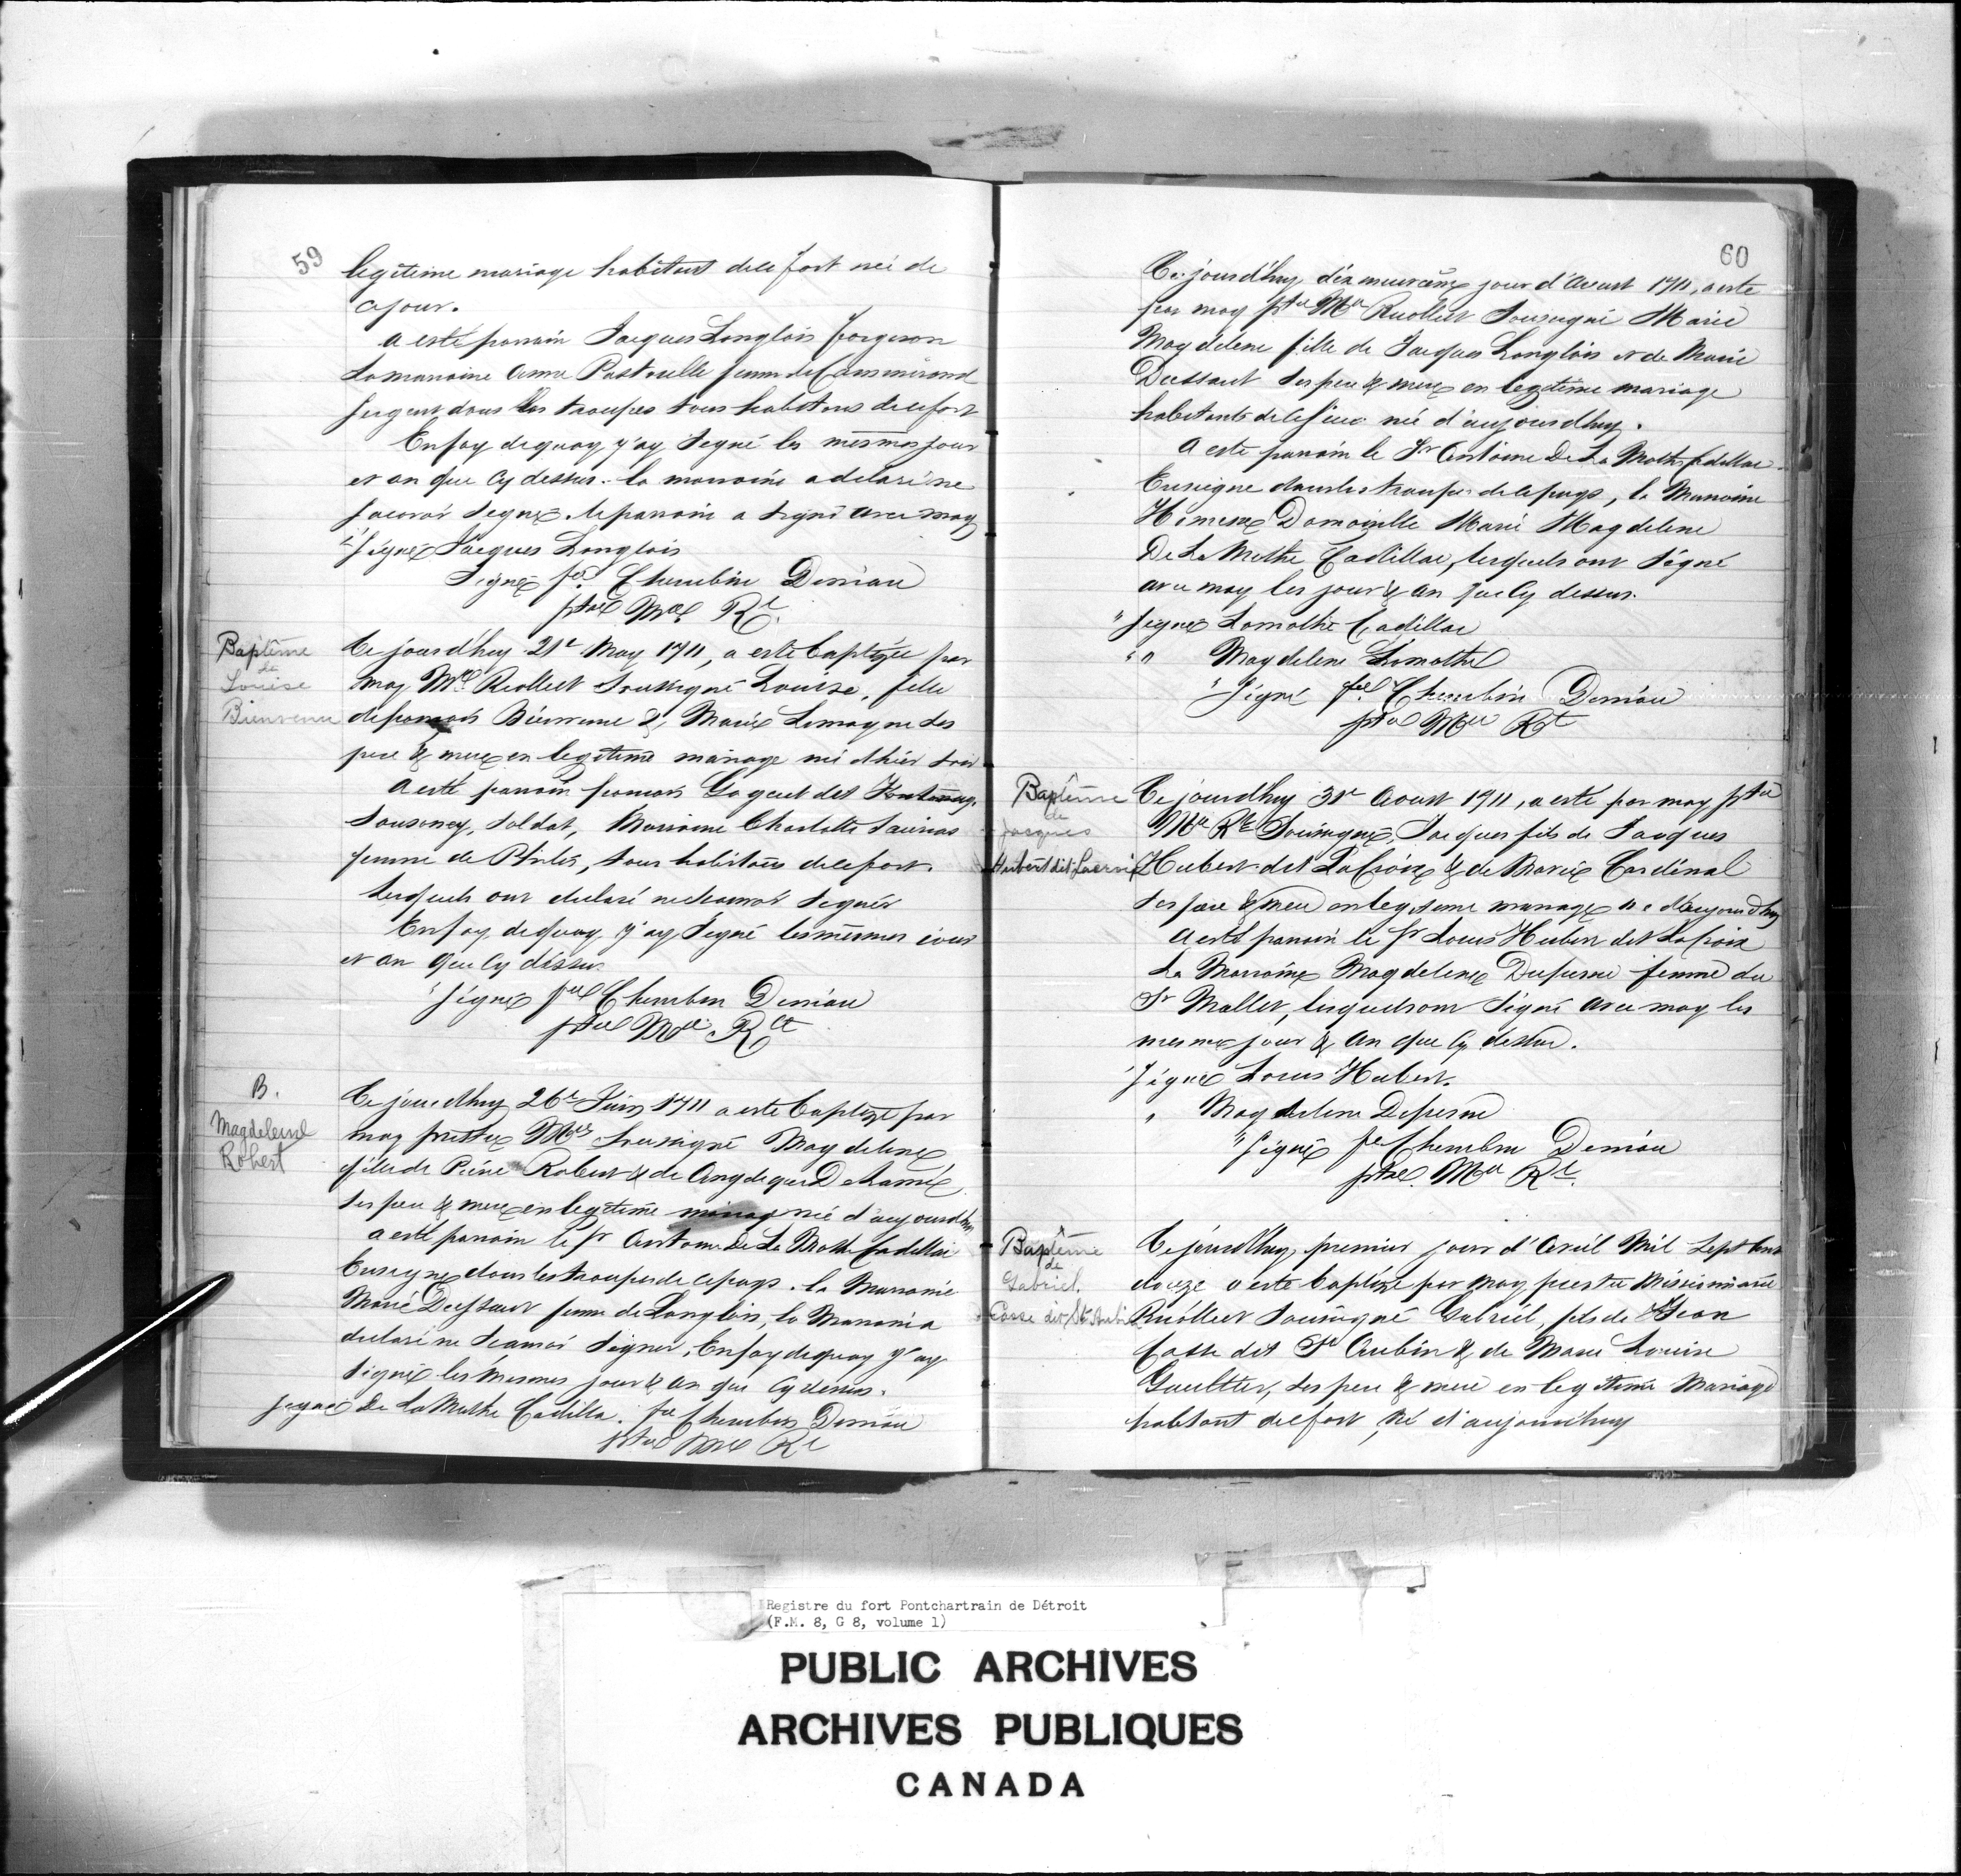 59
legitime mariage habitant dele fort née de
ce jour.
a esté parrain Jacques Langlois forgeron
La maraine Anne Pastorelle femme de
sergent dans les troupes tous habitans de ce fort
En foy de quoy j'ay Signé les mesmes jour
et an que cy dessus. la marraine a delaré ne
scavoir signer. le parrain a signé avec moy
Signé Jacques Langlois
Signé fr. Cherubin Deniau
ptre Mre Rt.
Baptême
de
Louise
Bienvenu
Ce jourd'huy 21e May 1711, a esté baptizée par
moy Mre Recollect Soussigné Louise, fille
de francois Bienvenu & Marie Lemoyne ses
pere & mere en legitime mariage née d'hier soir
a esté parrain francois dit
soldat, Marraine Charlotte
femme de tous habitans dele fort.
lesquels ont declaré ne scavoir signer
En foy de quoy j'ay Signé les mesmes jour
et an que cy dessus
"Signé frere Cherubin Deniau
ptre Mre. Rct
B.
Magdeleine
Robert
Ce jourdhuy 26e Juin 1711 a esté baptizé par
moy prestre Mre Soussigné Magdelene
fille de Pierre Robert & de Angelique Delamé
ses pere & mere en legitime mariag née d'aujourdhuy
a esté parrain le Sr Antoine De La Mothe Cadillac
Enseigne dans les troupes de ce pays. la Marraine
Marie Dussaut femme de Langlois, la Marraine a
declaré ne scavoir signer, En foy de quoy j'ay
signé les mesmes jour & an que cy dessus.
signé De La Mothe Cadilla. fre Cherubin Deniau
ptre Mre Rt
60
Ce jourd'huy dix neuviéme jour d'Aoust 1711, a esté
par moy ptre Mre Recollect Soussigné Marie
Magdelene fille de Jacques Langlois et de Marie
Dussaut ses pere & mere en legitime mariage
habitants de ce lieu née d'aujourdhuy.
A esté parrain le Sr Antoine De La Mothe Cadillac
Enseigne dans les troupes de ce pays, la Marraine
Damoiselle Marie Magdelene
De La Mothe Cadillac, lesquels ont signé
avec moy les jour & an que cy dessus.
"Signé Lamothe Cadillac
" " Magdelene Lamothe
"Signé frere Cherubin Deniau
ptre Mre Rt
Baptême
de
Jacques
Hubert dit Lacroix
Ce jourdhuy 31e Aoust 1711, a esté par moy ptre
Mre Rt Soussigné, Jacques fils de Jacques
Hubert dit La Croix & de Marie Cardinal
ses pere & mere en legiteme mariage né d'aujourdhuy
a esté parrain le Sr Louis Hubert dit Lacroix
La Marraine Magdelene Dufresne femme du
Sr Mallet, lesquels ont signé avec moy les
mesmes jour & an que cy dessus.
Signé Louis Hubert.
" Magdelene Defresne
"Signé fre Cherubin Deniau
ptre. Mre Rt.
Baptême
de
Gabriel
Casse dit St. Aubin
Ce jourdhuy, premier jour d'Avril Mil Sept Cent
douze a esté baptizé par moy prestre Missionnaire
Recollect soussigné Gabriel, fils de Jean
Casse dit St Aubin & de Marie Louise
Gaultier, ses pere & mere en legitime Mariage
habitant dele fort, né d'aujourd'huy
Registre du fort Pontchartrain de Détroit
(F.M. 8, G 8, volume 1)
PUBLIC ARCHIVES
ARCHIVES PUBLIQUES
CANADA